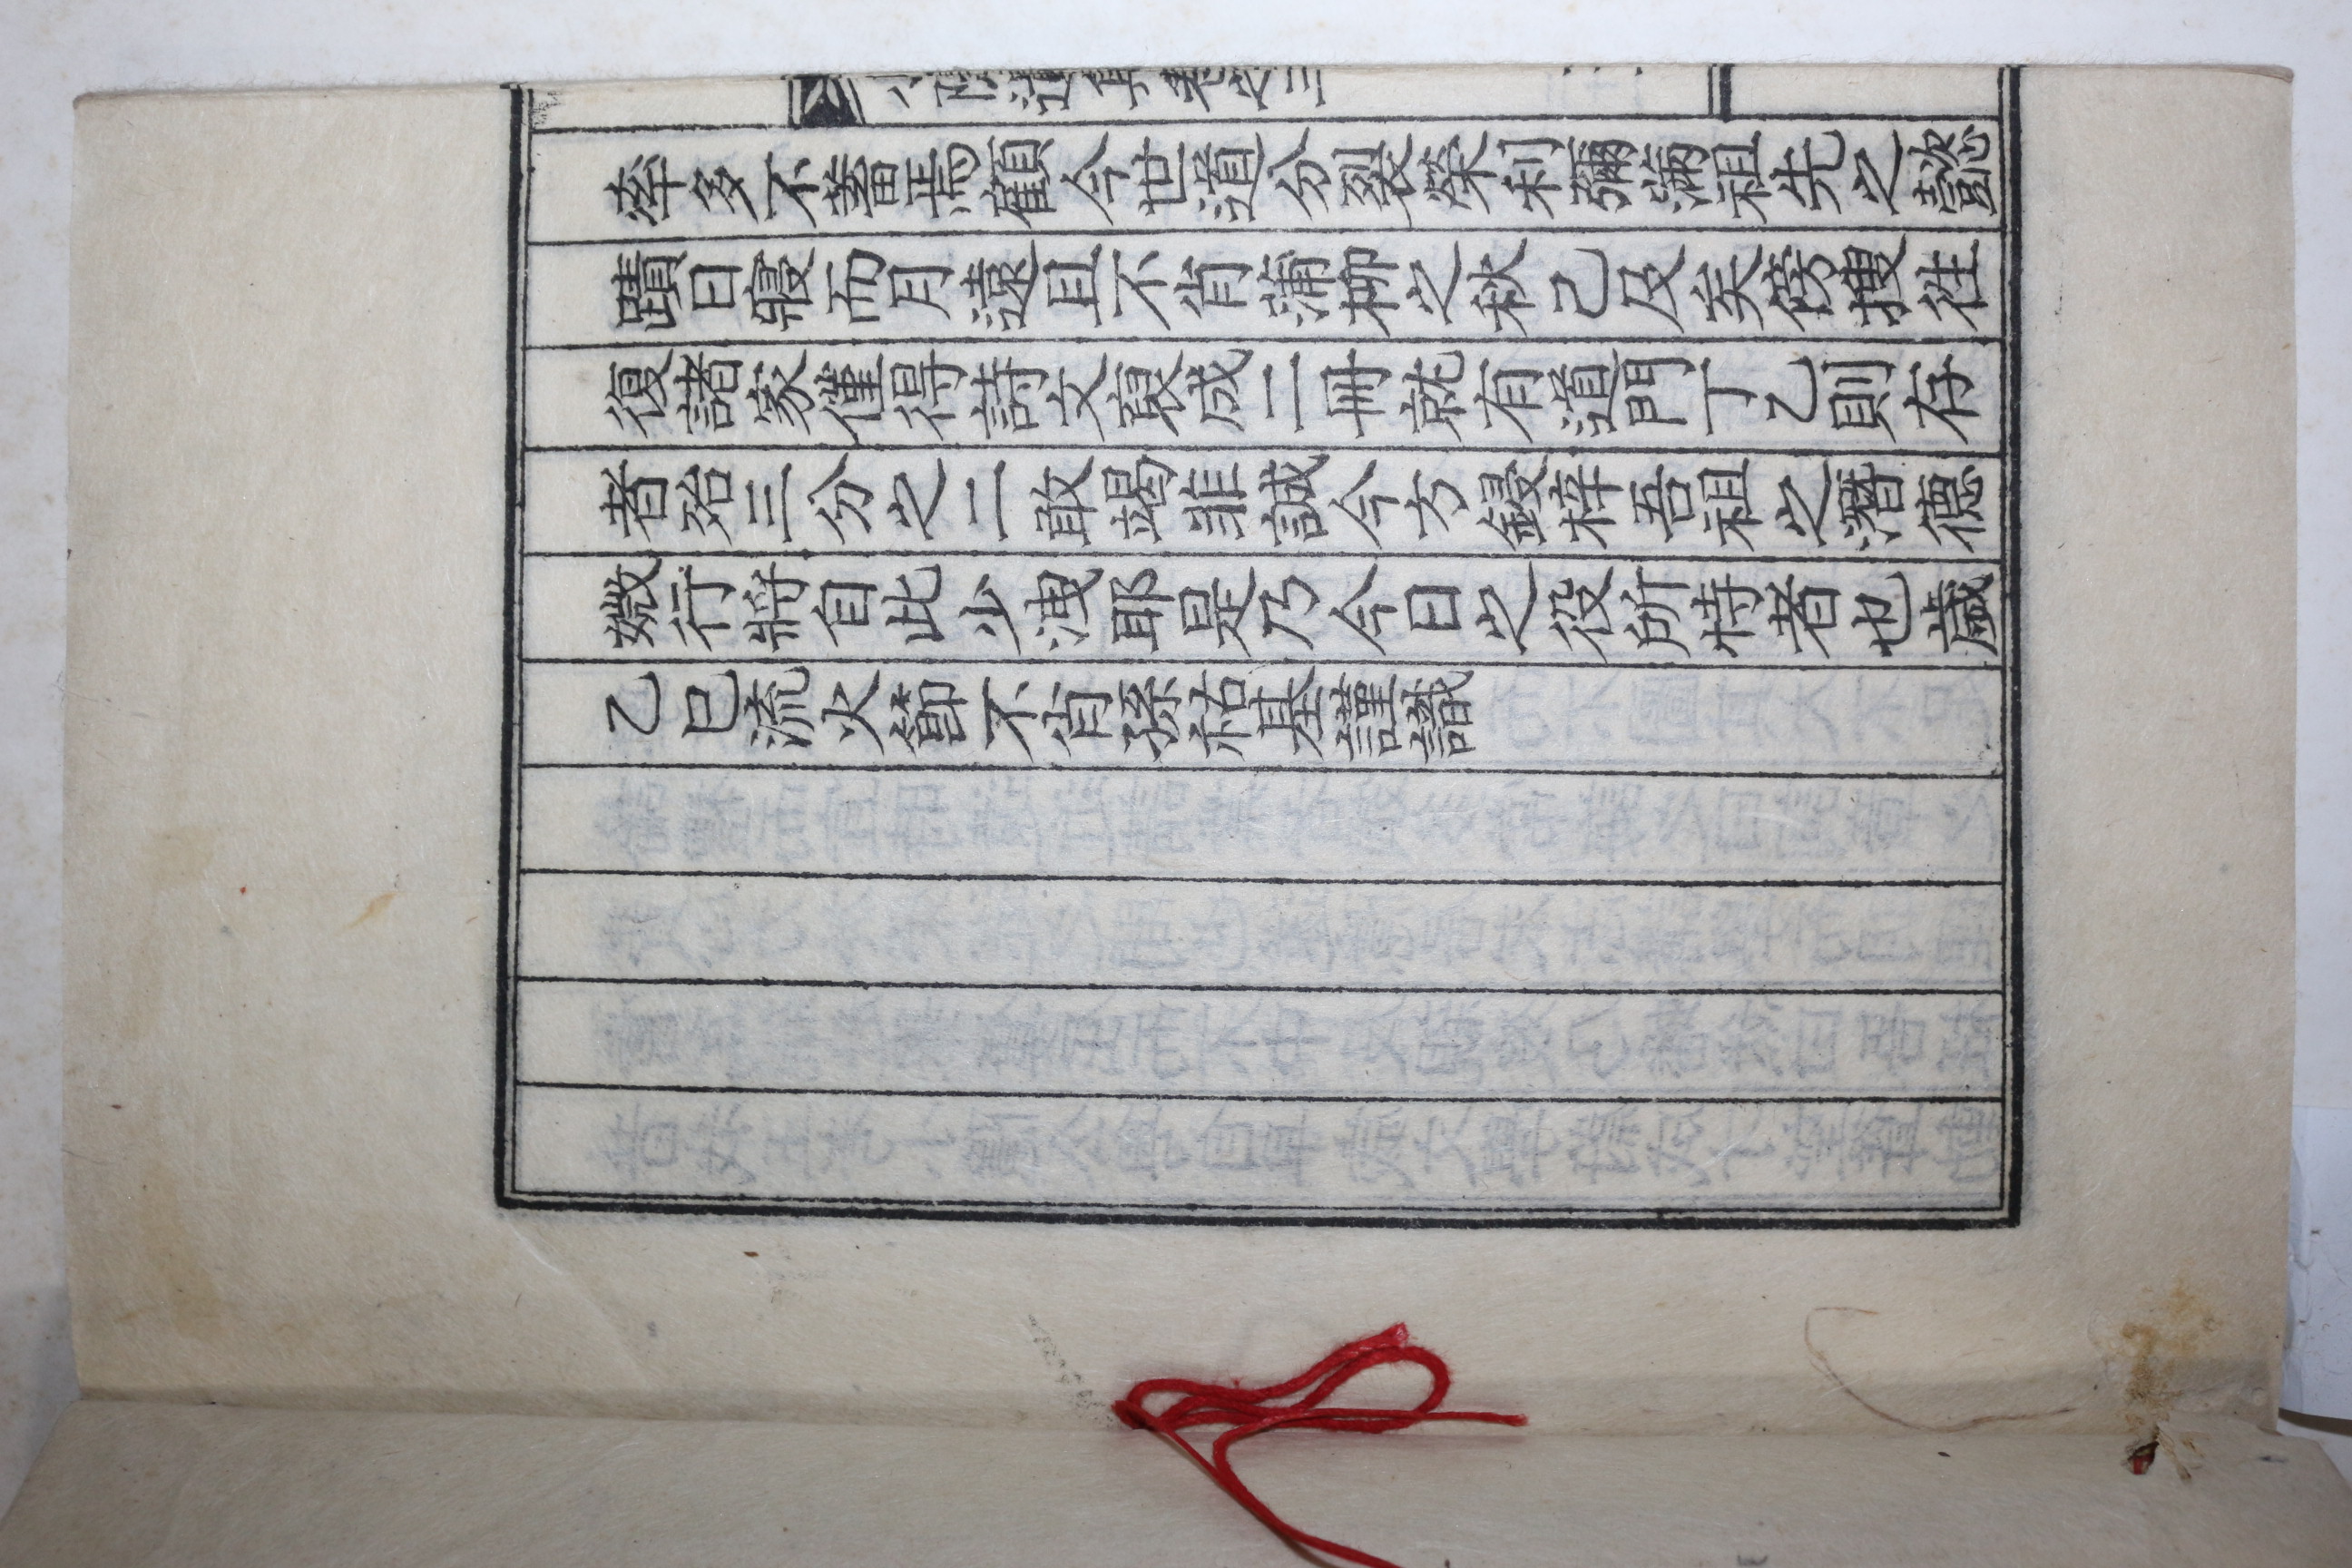 小隱遺集卷之三
率多不蓄焉顧今世道分裂榮利彌滿祖先之懿
蹟日寢而月遠且不肖蒲柳之秋己及矣傍搜徃
復諸家僅得詩文裒成二冊就有道門丁乙則存
者殆三分之二敢竭菲誠今方鋟梓吾祖之潛德
媺行將自此少洩耶是乃今日之役所恃者也歲
乙巳流火節不肖孫祐基謹識